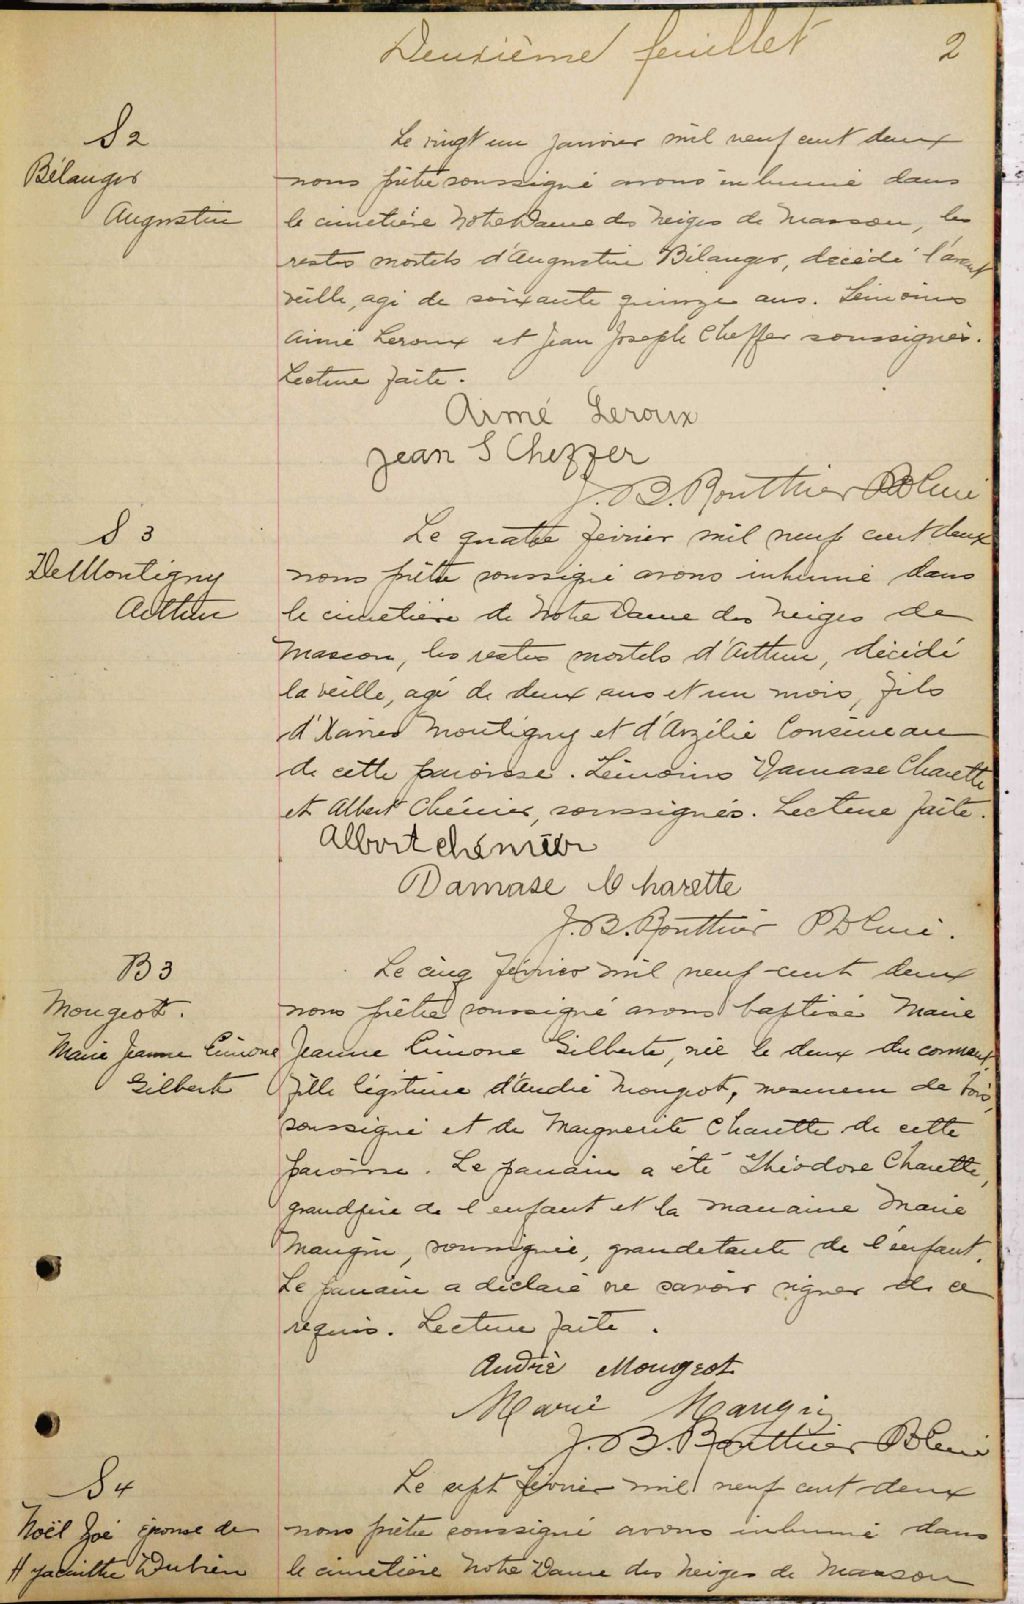 Deuxième feuillet 2
S 2
Bélanger
Augustin
Le vingt un janvier mil neuf cent deux
nous prêtre soussigné avons inhumé dans
le cimetière Notre Dame des Neiges de Masson, les
restes mortels d'Augustin Bélanger, décédé l'avant
veille, agé de soixante quinze ans. Témoins
Aimé Leroux et Jean Joseph Cheffer soussignés.
Lecture faite.
Aimé Leroux
Jean J Cheffer
J. B. Routhier Ptre Curé
S 3
DeMontigny
Arthur
Le quatre février mil neuf cent deux
nous prêtre soussigné avons inhumé dans
le cimetière de Notre Dame des Neiges de
Masson, les restes mortels d'Arthur, décédé
la veille, agé de deux ans et un mois, fils
d'Xavier Montigny et d'Arzélie Cousineau
de cette paroisse. Témoins Damase Charette
et Albert Chénier, soussignés. Lecture faite.
Albert chénier
Damase Charette
J. B. Routhier Ptre Curé.
B 3
Mougeot.
Marie Jeanne Simone
Gilberte
Le cinq février mil neuf cent deux
nous prêtre soussigné avons baptisé Marie
Jeanne Simone Gilberte, née le deux du courant,
fille légitime d'André Mougeot, mesureur de bois,
soussigné et de Marguerite Charette de cette
paroisse. Le parrain a été Théodore Charette,
grandpère de l'enfant et la marraine Marie
Mangin, soussignée, grandetante de l'enfant.
Le parrain a déclaré ne savoir signer de ce
requis. Lecture faite.
André Mougeot
Marie Mangin
J. B. Routhier Ptre Curé
S 4
Noël Zoé épouse de
Hyacinthe Dubien
Le sept février mil neuf cent deux
nous prêtre soussigné avons inhumé dans
le cimetière Notre Dame des Neiges de Masson